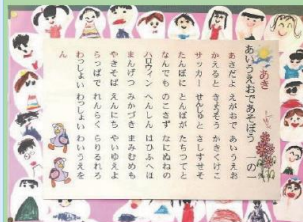 あき
あいうえおであそぼう 一の
あさだよ えがおで あいうえお
かえると きょうそう かきくけこ
サッカー せんしゅと さしすせそ
たんぼに とんぼが たちつてと
なんでも のこさず なにぬねの
ハロウィン へんしん はひふへほ
まんげつ みかづき まみむめも
やきそば えんにち やいゆえよ
らっぱで れんらく らりるれろ
わっしょい わっしょい わいうえを
ん